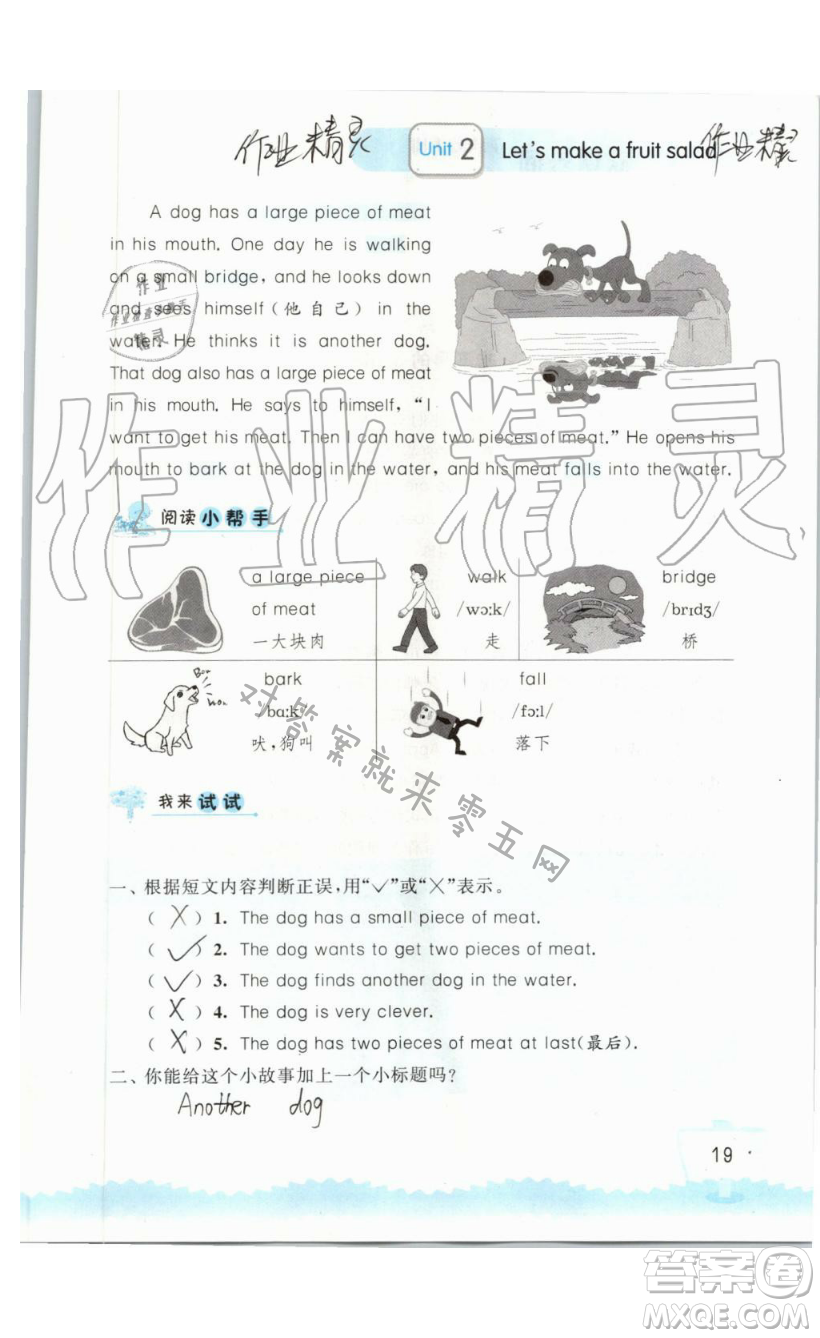 作业精灵 Unit 2 Let's make a fruit salad 作业精灵
A dog has a large piece of meat
in his mouth. One day he is walking
on a small bridge, and he looks down
and sees himself(他自己) in the
water. He thinks it is another dog.
That dog also has a large piece of meat
in his mouth. He says to himself, “I
want to get his meat. Then I can have two pieces of meat.” He opens his
mouth to bark at the dog in the water, and his meat falls into the water.
作业
精灵
作业精灵
阅读小帮手
a large piece
of meat
一大块肉
walk
/wɔːk/
走
bridge
/brɪdʒ/
桥
bark
/bɑːk/
吠,狗叫
fall
/fɔːl/
落下
对答案就来零五网
我来试试
一、根据短文内容判断正误,用“✓”或“×”表示。
( X ) 1. The dog has a small piece of meat.
( ✓ ) 2. The dog wants to get two pieces of meat.
( ✓ ) 3. The dog finds another dog in the water.
( X ) 4. The dog is very clever.
( X ) 5. The dog has two pieces of meat at last(最后).
二、你能给这个小故事加上一个小标题吗?
Another dog
19
答案卷
MXQE.COM